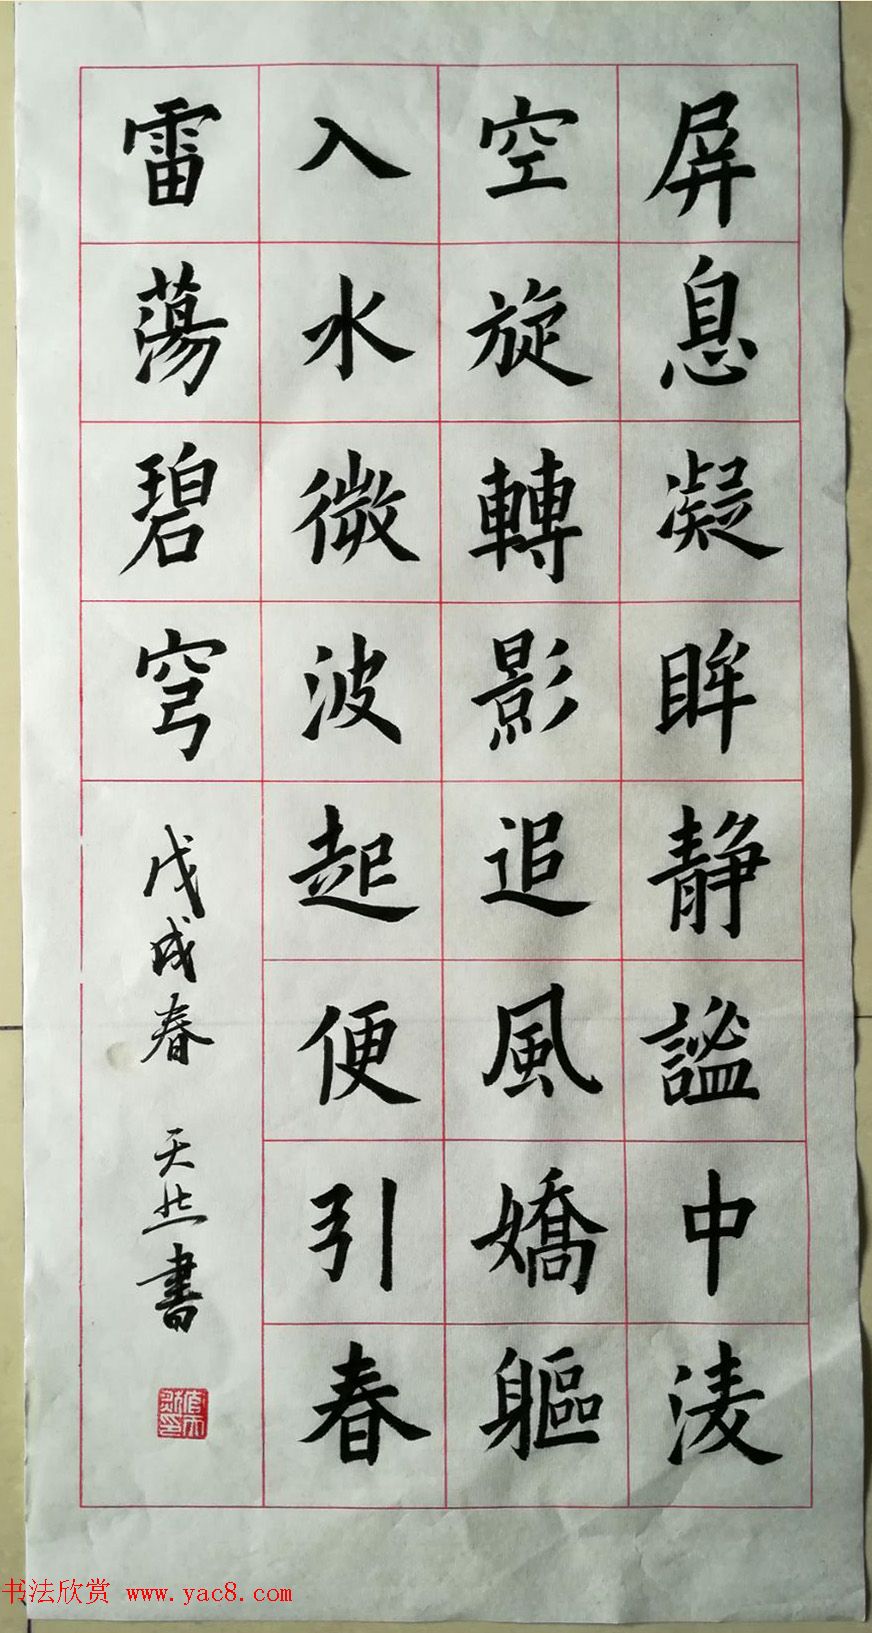 屏息凝眸静謐中淩
空旋轉影追風嬌軀
入水微波起便引春
雷蕩碧穹
戊戌春 天然書
书法欣赏 www.yac8.com